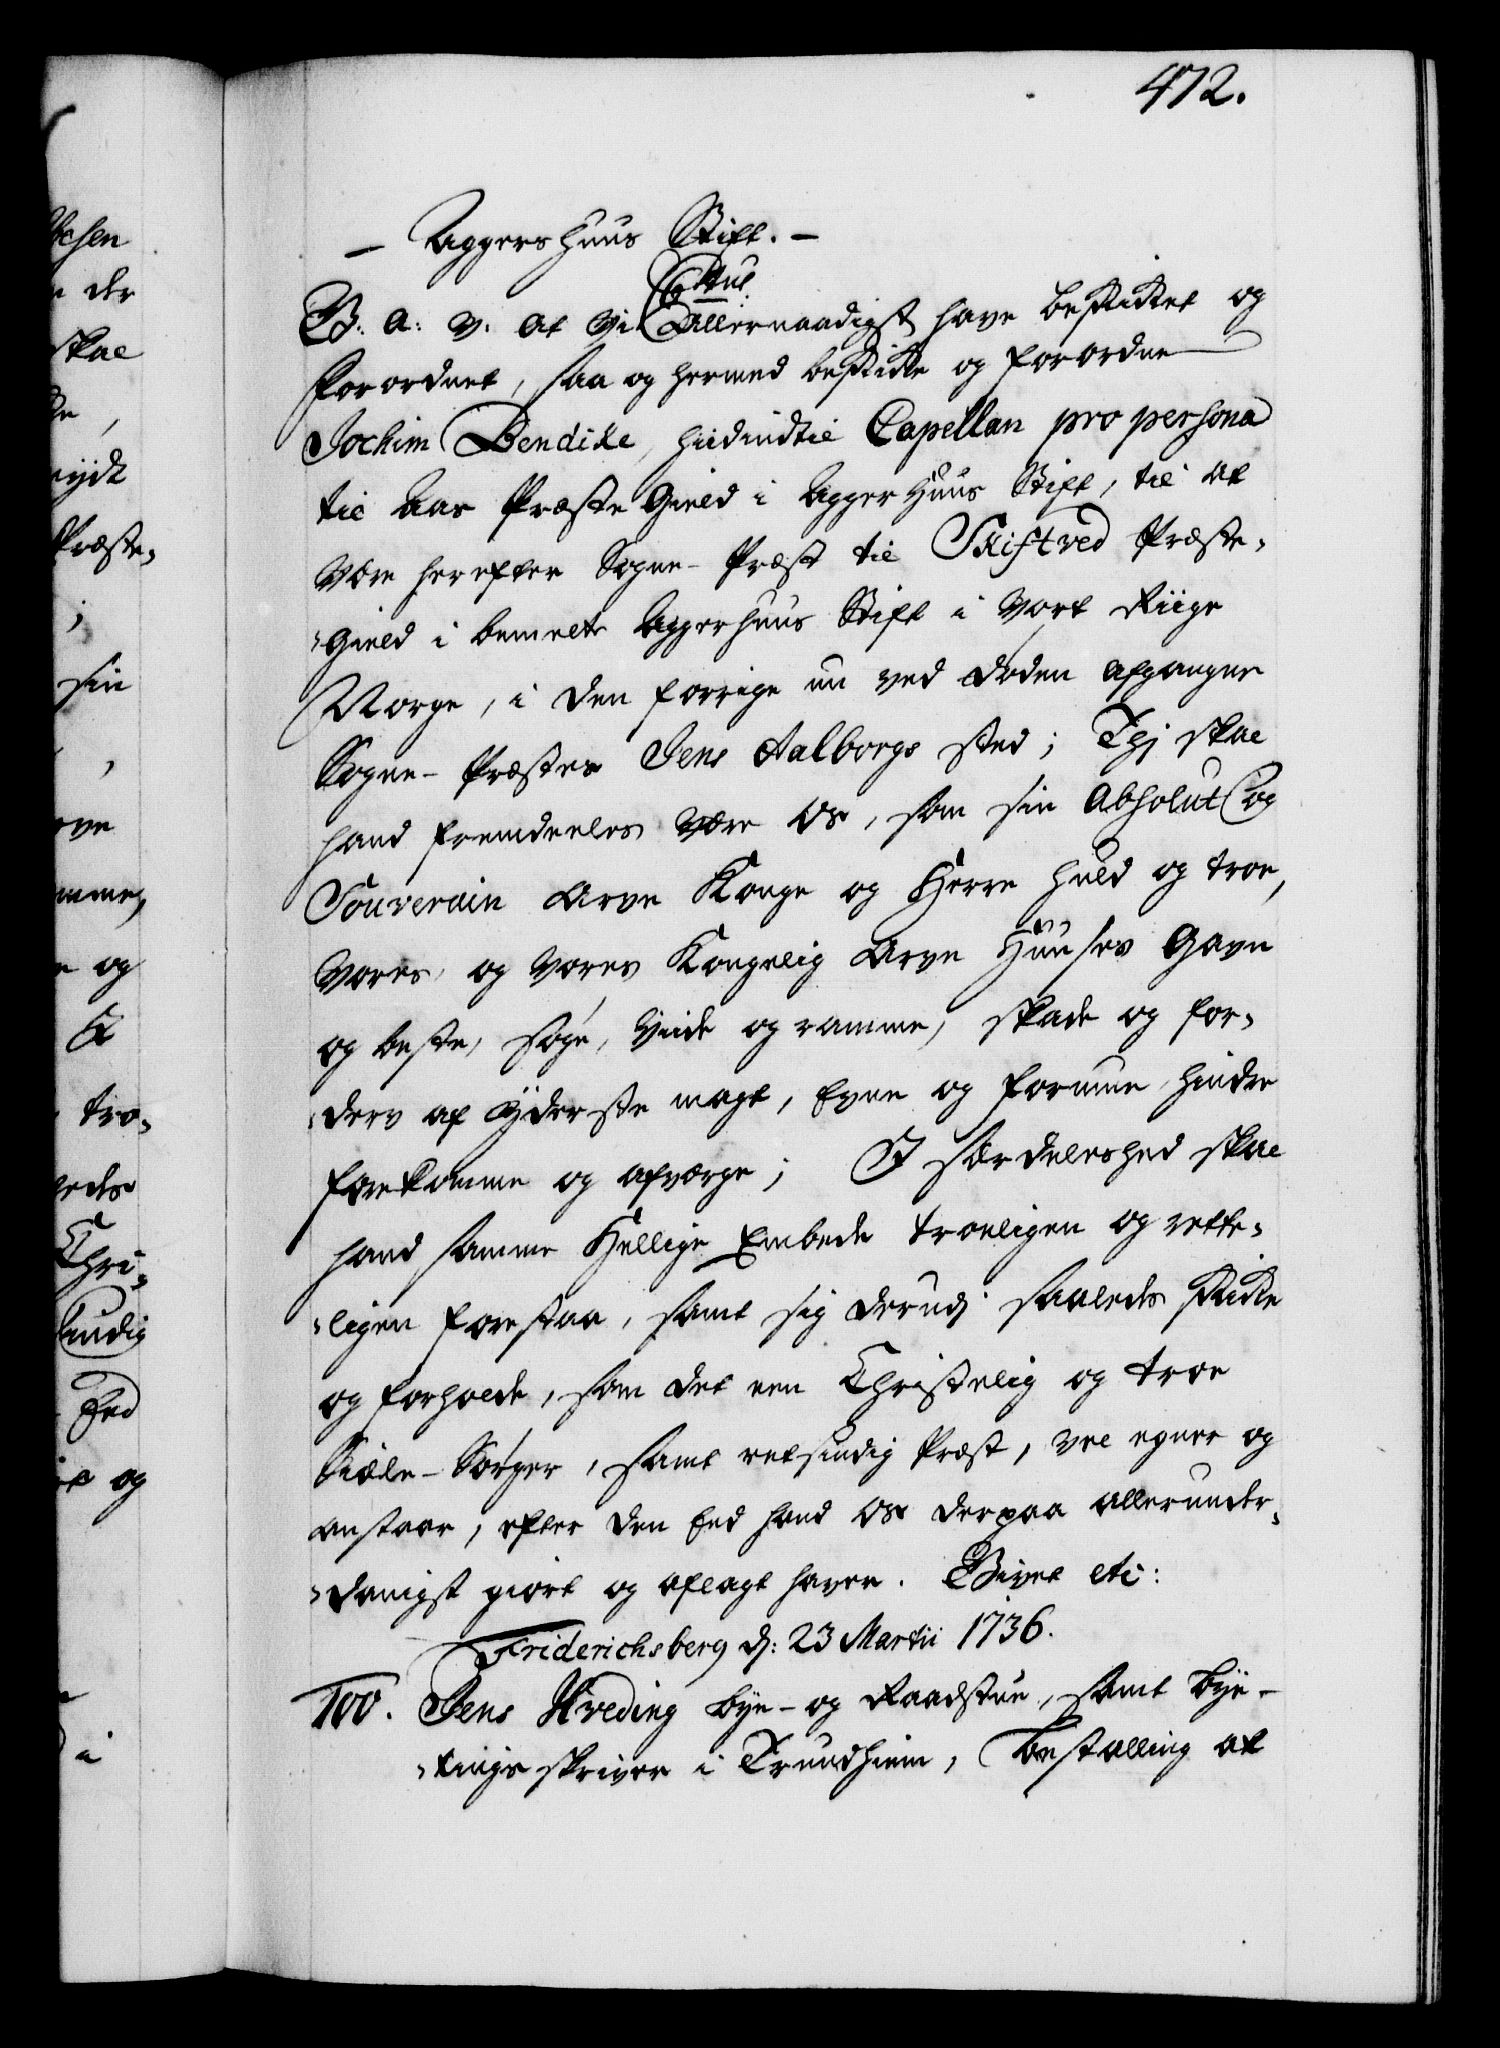 472.
- Aggershuus Stift. -
C. Tit.
G. A. V. At Vi Allernaadigst have beskikket og
forordnet, saa og hermed beskikke og forordne
Jochim Bendike, hidindtil Capellan pro persona
til Aas Præste Gield i Aggershuus Stift, til at
være herefter Sogne-Præst til Skiftved Præste-
Gield i bemelte Aggershuus Stift i Vort Riige
Norge, i den forrige nu ved døden afgangne
Sogne-Præstes Jens Aalborgs sted; Thj skal
hand fremdeeles være Os, som sin Absolut og
Souverain Arve Konge og Herre huld og troe,
Vores og Vores Kongelig Arve Huuses Gavn
og beste, søge, viide og ramme, skade og for-
derv af Yderste magt, Evne og formue hindre
forekomme og afværge; I særdeleshed skal
hand samme Hellige Embede troeligen og rette-
ligen forestaa, samt sig derudj saaledes skikke
og forholde, som det een Christelig og troe
Siæle-Sørger, samt retsindig Præst, vel egner og
anstaar, efter den Eed hand Os derpaa allerunder-
danigst giort og aflagt haver. Givet etc:
Friderichsberg d: 23 Martii 1736.
100. Jens Hveding bye- og Raadstue, samt bye-
tings skriver i Trundhiem, Bestalling at
Præste-
sin
tro-
Chri-
Eed
og